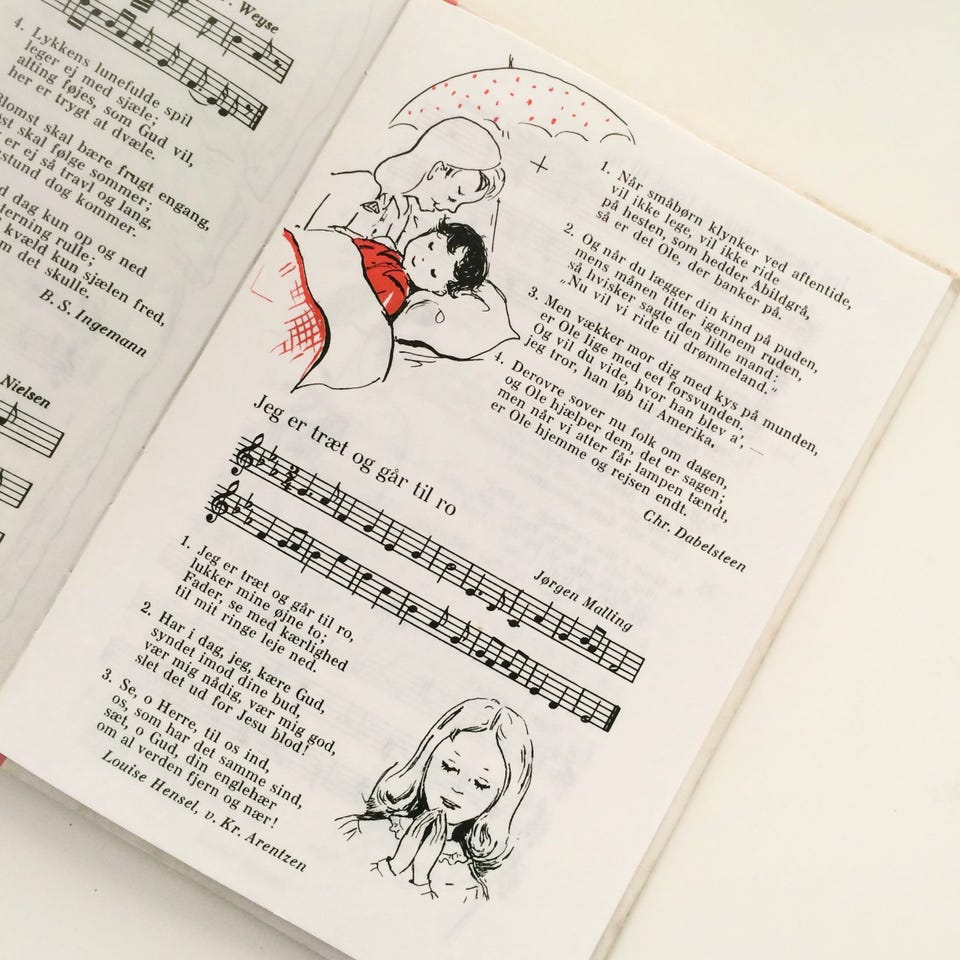 . Weyse
4. Lykkens lunefulde spil
leger ej med sjæle;
alting føjes, som Gud vil,
her er trygt at dvæle.
Blomst skal bære frugt engang,
skal følge sommer;
er ej så travl og lang,
stund dog kommer.
dag kun op og ned
rulle;
kvæld kun sjælen fred,
det skulle.
B. S. Ingemann
Nielsen
1. Når småbørn klynker ved aftentide,
vil ikke lege, vil ikke ride
på hesten, som hedder Abildgrå,
så er det Ole, der banker på.
2. Og når du lægger din kind på puden,
mens månen titter igennem ruden,
så hvisker sagte den lille mand:
„Nu vil vi ride til drømmeland."
3. Men vækker mor dig med kys på munden,
er Ole lige med eet forsvunden.
Og vil du vide, hvor han blev a', —
jeg tror, han løb til Amerika,
4. Derovre sover nu folk om dagen,
og Ole hjælper dem, det er sagen;
men når vi atter får lampen tændt,
er Ole hjemme og rejsen endt.
Chr. Dabelsteen
Jeg er træt og går til ro
Jørgen Malling
1. Jeg er træt og går til ro,
lukker mine øjne to;
Fader, se med kærlighed
til mit ringe leje ned.
2. Har i dag, jeg, kære Gud,
syndet imod dine bud,
vær mig nådig, vær mig god,
slet det ud for Jesu blod!
3. Se, o Herre, til os ind,
os, som har det samme sind,
sæt, o Gud, din englehær
om al verden fjern og nær!
Louise Hensel, v. Kr. Arentzen